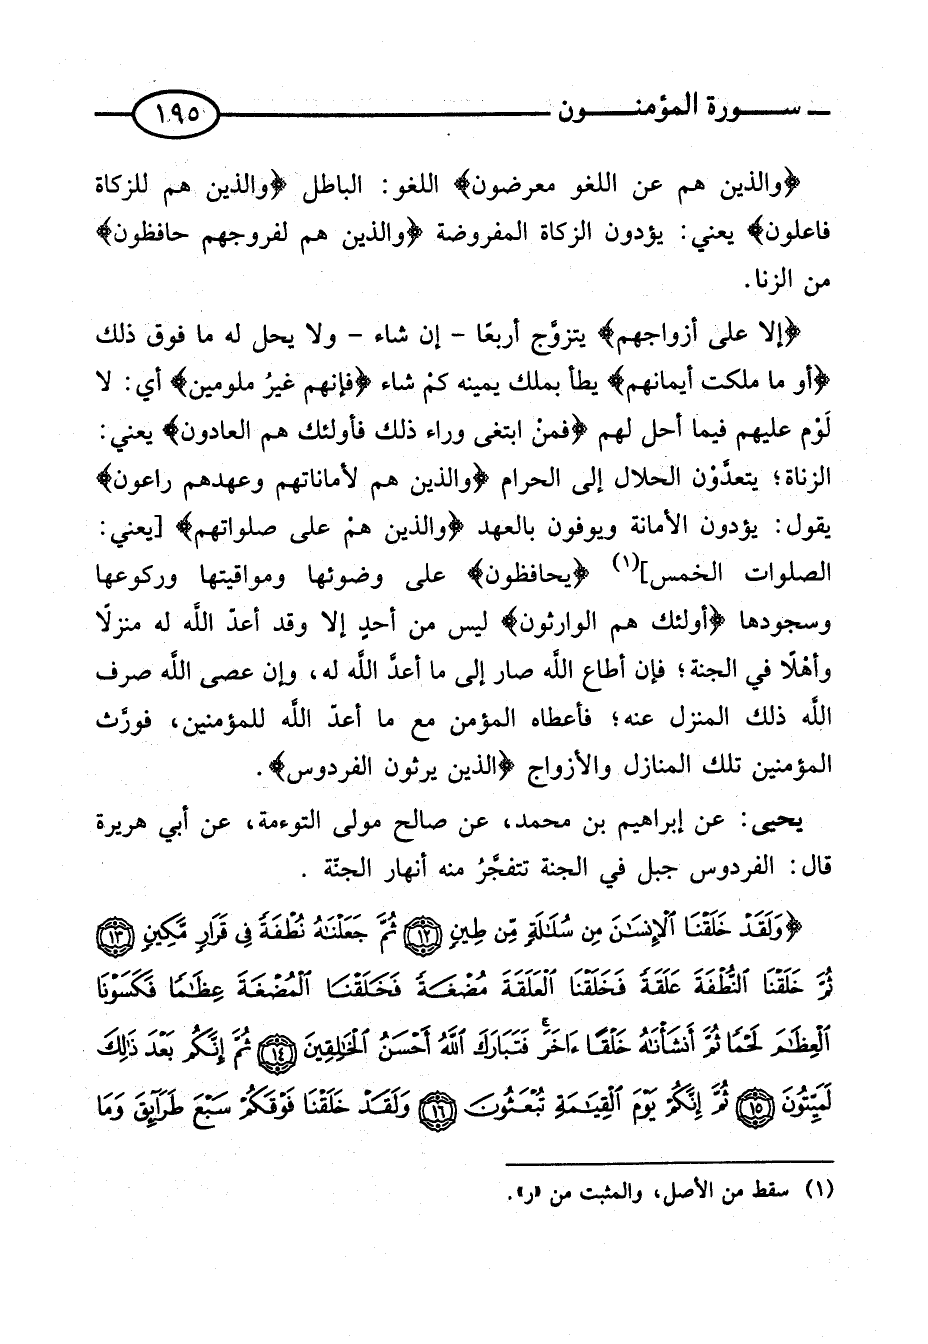 سورة المؤمنون ١٩٥
﴿والذين هم عن اللغو معرضون﴾ اللغو: الباطل ﴿والذين هم للزكاة
فاعلون﴾ يعني: يؤدون الزكاة المفروضة ﴿والذين هم لفروجهم حافظون﴾
من الزنا.
﴿إلا على أزواجهم﴾ يتزوَّج أربعًا - إن شاء - ولا يحل له ما فوق ذلك
﴿أو ما ملكت أيمانهم﴾ يطأ بملك يمينه كمْ شاء ﴿فإنهم غيرُ ملومين﴾ أي: لا
لَوْم عليهم فيما أحل لهم ﴿فمنْ ابتغى وراء ذلك فأولئك هم العادون﴾ يعني:
الزناة؛ يتعدَّوْن الحلال إلى الحرام ﴿والذين هم لأماناتهم وعهدهم راعون﴾
يقول: يؤدون الأمانة ويوفون بالعهد ﴿والذين همْ على صلواتهم﴾ [يعني:
الصلوات الخمس](١) ﴿يحافظون﴾ على وضوئها ومواقيتها وركوعها
وسجودها ﴿أولئك هم الوارثون﴾ ليس من أحدٍ إلا وقد أعدّ اللَّه له منزلًا
وأهْلًا في الجنة؛ فإن أطاع اللَّه صار إلى ما أعدَّ اللَّه له، وإن عصى اللَّه صرف
اللَّه ذلك المنزل عنه؛ فأعطاه المؤمن مع ما أعدّ اللَّه للمؤمنين، فورَّث
المؤمنين تلك المنازل والأزواج ﴿الذين يرثون الفردوس﴾.
يحيى: عن إبراهيم بن محمد، عن صالح مولى التوءمة، عن أبي هريرة
قال: الفردوس جبل في الجنة تتفجَّرُ منه أنهار الجنّة .
﴿وَلَقَدْ خَلَقْنَا ٱلْإِنسَـٰنَ مِن سُلَـٰلَةٍ مِّن طِينٍ ١٢ ثُمَّ جَعَلْنَـٰهُ نُطْفَةً فِى قَرَارٍ مَّكِينٍ ١٣
ثُمَّ خَلَقْنَا ٱلنُّطْفَةَ عَلَقَةً فَخَلَقْنَا ٱلْعَلَقَةَ مُضْغَةً فَخَلَقْنَا ٱلْمُضْغَةَ عِظَـٰمًا فَكَسَوْنَا
ٱلْعِظَـٰمَ لَحْمًا ثُمَّ أَنشَأْنَـٰهُ خَلْقًا ءَاخَرَ ۚ فَتَبَارَكَ ٱللَّهُ أَحْسَنُ ٱلْخَـٰلِقِينَ ١٤ ثُمَّ إِنَّكُم بَعْدَ ذَٰلِكَ
لَمَيِّتُونَ ١٥ ثُمَّ إِنَّكُمْ يَوْمَ ٱلْقِيَـٰمَةِ تُبْعَثُونَ ١٦ وَلَقَدْ خَلَقْنَا فَوْقَكُمْ سَبْعَ طَرَآئِقَ وَمَا
(١) سقط من الأصل، والمثبت من «ر».